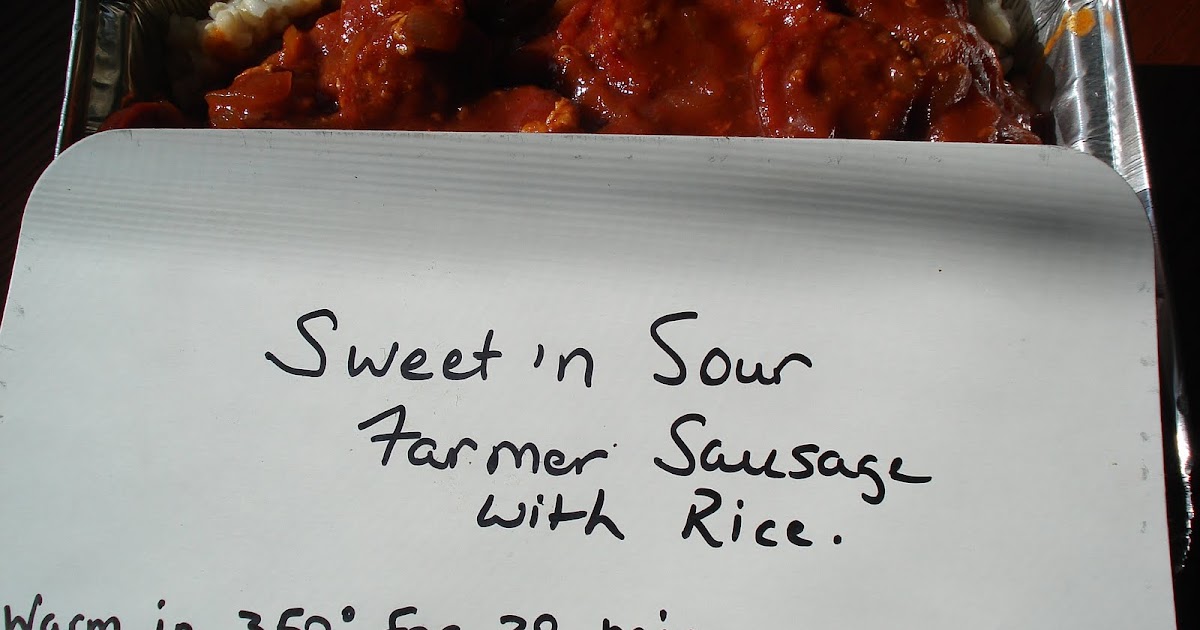 Sweet 'n Sour
Farmer Sausage
with Rice.
Warm in 350° for